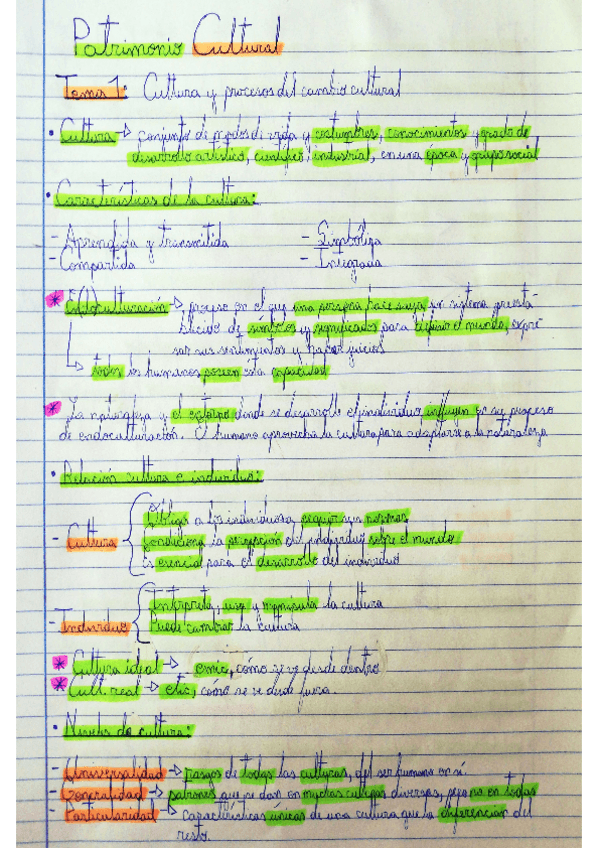 Patrimonio Cultural
Tema 1: Cultura y procesos del cambio cultural
· Cultura → conjunto de modos de vida y costumbres, conocimientos y grado de
desarrollo artístico, científico, industrial, en una época y grupo social
· Características de la cultura:
- Aprendida y transmitida
- Simbóliza
- Compartida
- Integrada
* Endoculturación → proceso en el que una persona hace suya un sistema preesta-
blecido de símbolos y significados para definir el mundo, expre-
sar sus sentimientos y hacer juicios
→ todos los humanos poseen esta capacidad
* La naturaleza y el entorno donde se desarrolla el individuo influyen en su proceso
de endoculturación. El humano aprovecha la cultura para adaptarse a la naturaleza
· Relación cultura e individuo:
- Cultura { Obliga a los individuos a seguir sus normas
Condiciona la percepción del individuo sobre el mundo
Es esencial para el desarrollo del individuo
- Individuo { Interpreta, usa y manipula la cultura
Puede cambiar la cultura
* Cultura ideal → emic, cómo se ve desde dentro
* Cult. real → etic, cómo se ve desde fuera.
· Niveles de cultura:
- Universalidad → rasgos de todas las culturas, del ser humano en sí.
- Generalidad → patrones que se dan en muchas culturas diversas, pero no en todas
- Particularidad → características únicas de una cultura que la diferencian del
resto.